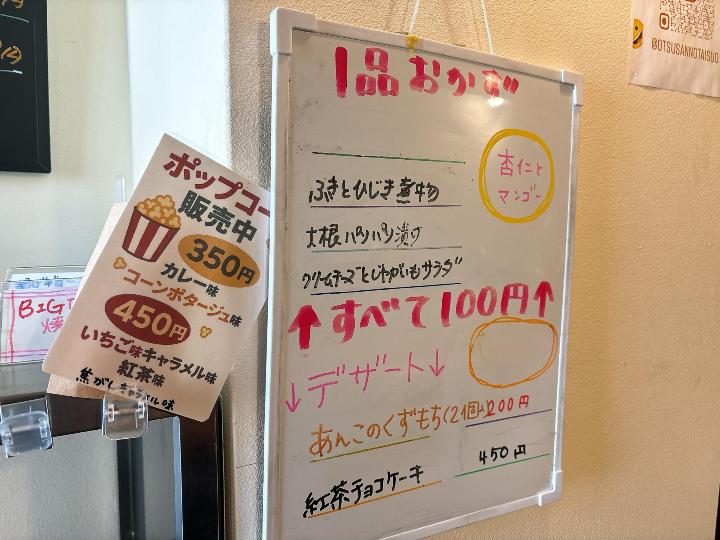 1品おかず
杏仁と
マンゴー
ふきとひじき煮物
大根パリパリ漬け
クリームチーズとじゃがいもサラダ
↑すべて100円↑
↓デザート↓
あんこのくずもち(2個入)200円
450円
紅茶チョコケーキ
ポップコー
販売中
350円
カレー味
コーンポタージュ味
450円
いちご味キャラメル味
紅茶味
焦がしキャラメル味
BIG
@OTSUSANNOTAISUO